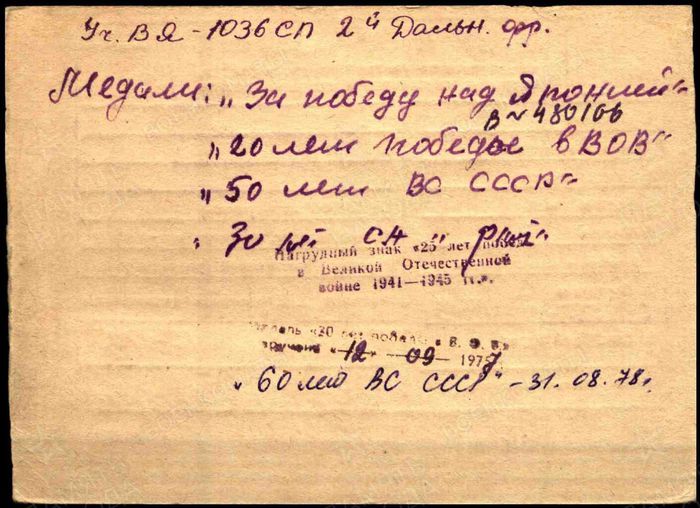 Уч. В Я - 1036 СП 2й Дальн. фр.
Медали: „За победу над Японией"
В № 480106
„20 лет победы в ВОВ"
„50 лет ВС СССР"
„30 лет СА и
Нагрудный знак «25 лет победы
в Великой Отечественной
войне 1941—1945 гг.».
Медаль «30 лет победы в В. О. В.»
вручена «12» 09 1977
„60 лет ВС СССР" - 31.08.78г.